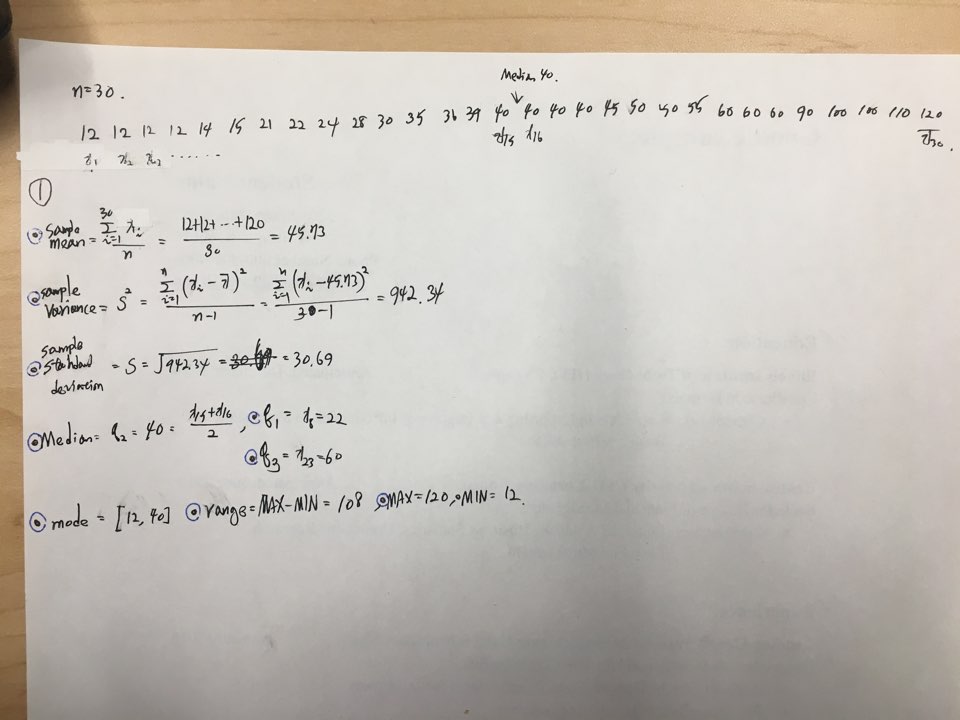 Median 40.
n=30.
12 12 12 12 14 15 21 22 24 28 30 35 36 39 40 40 40 40 45 50 50 55 60 60 60 90 100 100 110 120
x₁ x₂ x₃ ...... x₁₅ x₁₆ x₃₀.
①
sample mean = \frac{\sum_{i=1}^{30} x_i}{n} = \frac{12+12+...+120}{30} = 45.73
sample variance = S² = \frac{\sum_{i=1}^{n} (x_i - \bar{x})^2}{n-1} = \frac{\sum_{i=1}^{n} (x_i - 45.73)^2}{30-1} = 942.34
sample standard deviation = S = √942.34 = 30.69
Median = q₂ = 40 = \frac{x_{15}+x_{16}}{2}, q₁ = x₈ = 22
q₃ = x₂₃ = 60
mode = [12, 40] range = MAX-MIN = 108, MAX = 120, MIN = 12.